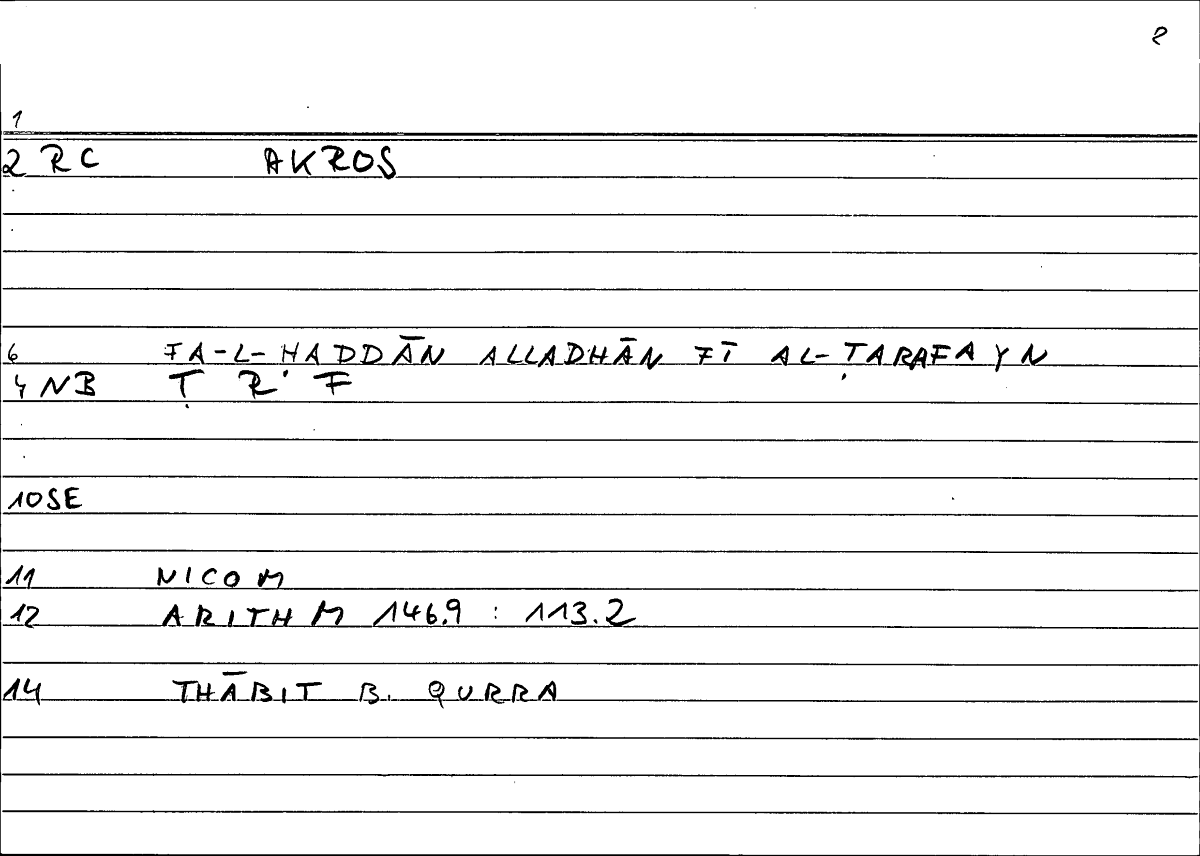 2
1
2 RC AKROS
6 FA-L-ḤADDĀN ALLADHĀN FĪ AL-ṬARAFAYN
4 NB Ṭ R F
10 SE
11 NICOM
12 ARITHM 146.9 : 113.2
14 THĀBIT B. QURRA